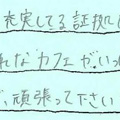 充実してる証拠
れなカフェがいっ
、頑張って下さい